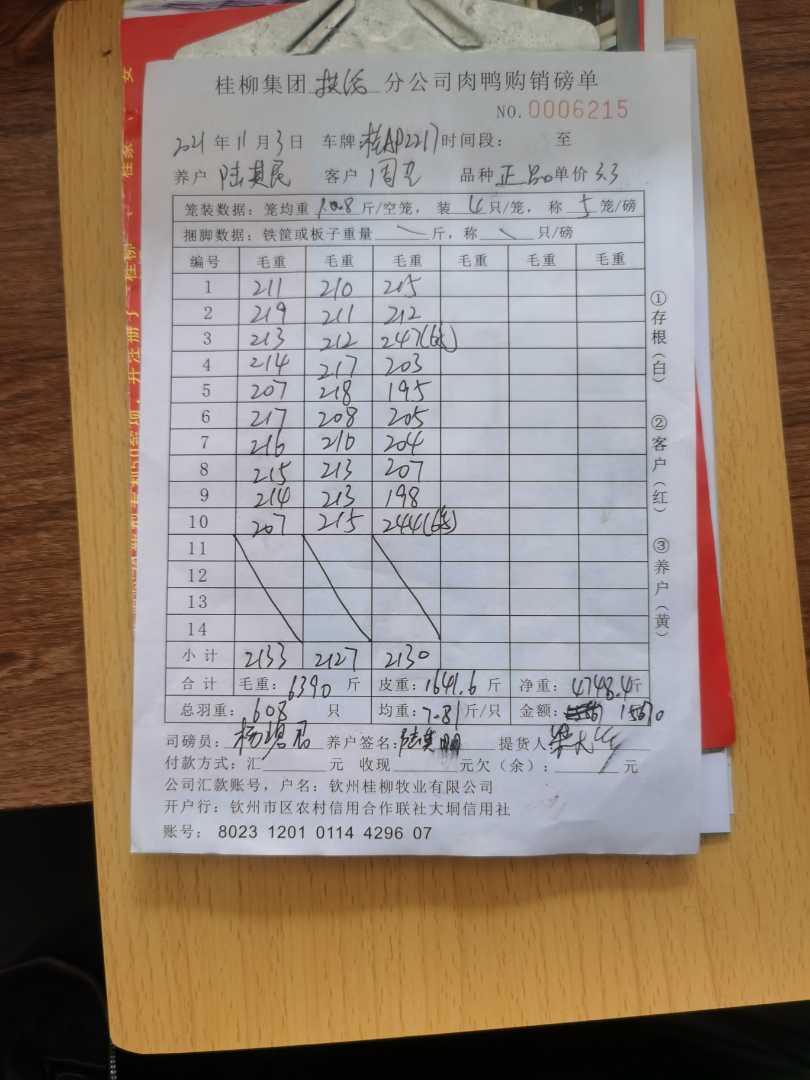 桂柳集团 分公司肉鸭购销磅单
NO.0006215
2021年11月3日 车牌桂AP2217时间段: 至
养户 陆其民 客户 周 品种正品单价3.3
笼装数据:笼均重10.8斤/空笼,装4只/笼,称5笼/磅
捆脚数据:铁筐或板子重量\斤,称\只/磅
编号 毛重 毛重 毛重 毛重 毛重 毛重
1 211 210 215
2 219 211 212
3 213 212 247(6笼)
4 214 217 203
5 207 218 195
6 217 208 205
7 216 210 204
8 215 213 207
9 214 213 198
10 207 215 244(6笼)
11
12
13
14
小计 2133 2127 2130
合计 毛重:6390斤 皮重:1641.6斤 净重:4748.4斤
总羽重:608只 均重:7.81斤/只 金额: 15670
司磅员:杨 养户签名:陆 提货人 梁
付款方式:汇 元 收现 元欠(余): 元
公司汇款账号,户名:钦州桂柳牧业有限公司
开户行:钦州市区农村信用合作联社大垌信用社
账号: 8023 1201 0114 4296 07
①存根(白)
②客户(红)
③养户(黄)
女
桂家
桂柳